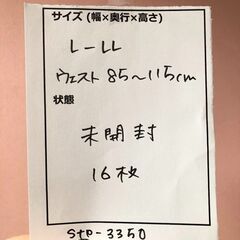 サイズ (幅×奥行×高さ)
L-LL
ウェスト 85～115cm
状態
未開封
16枚
Stp-3350